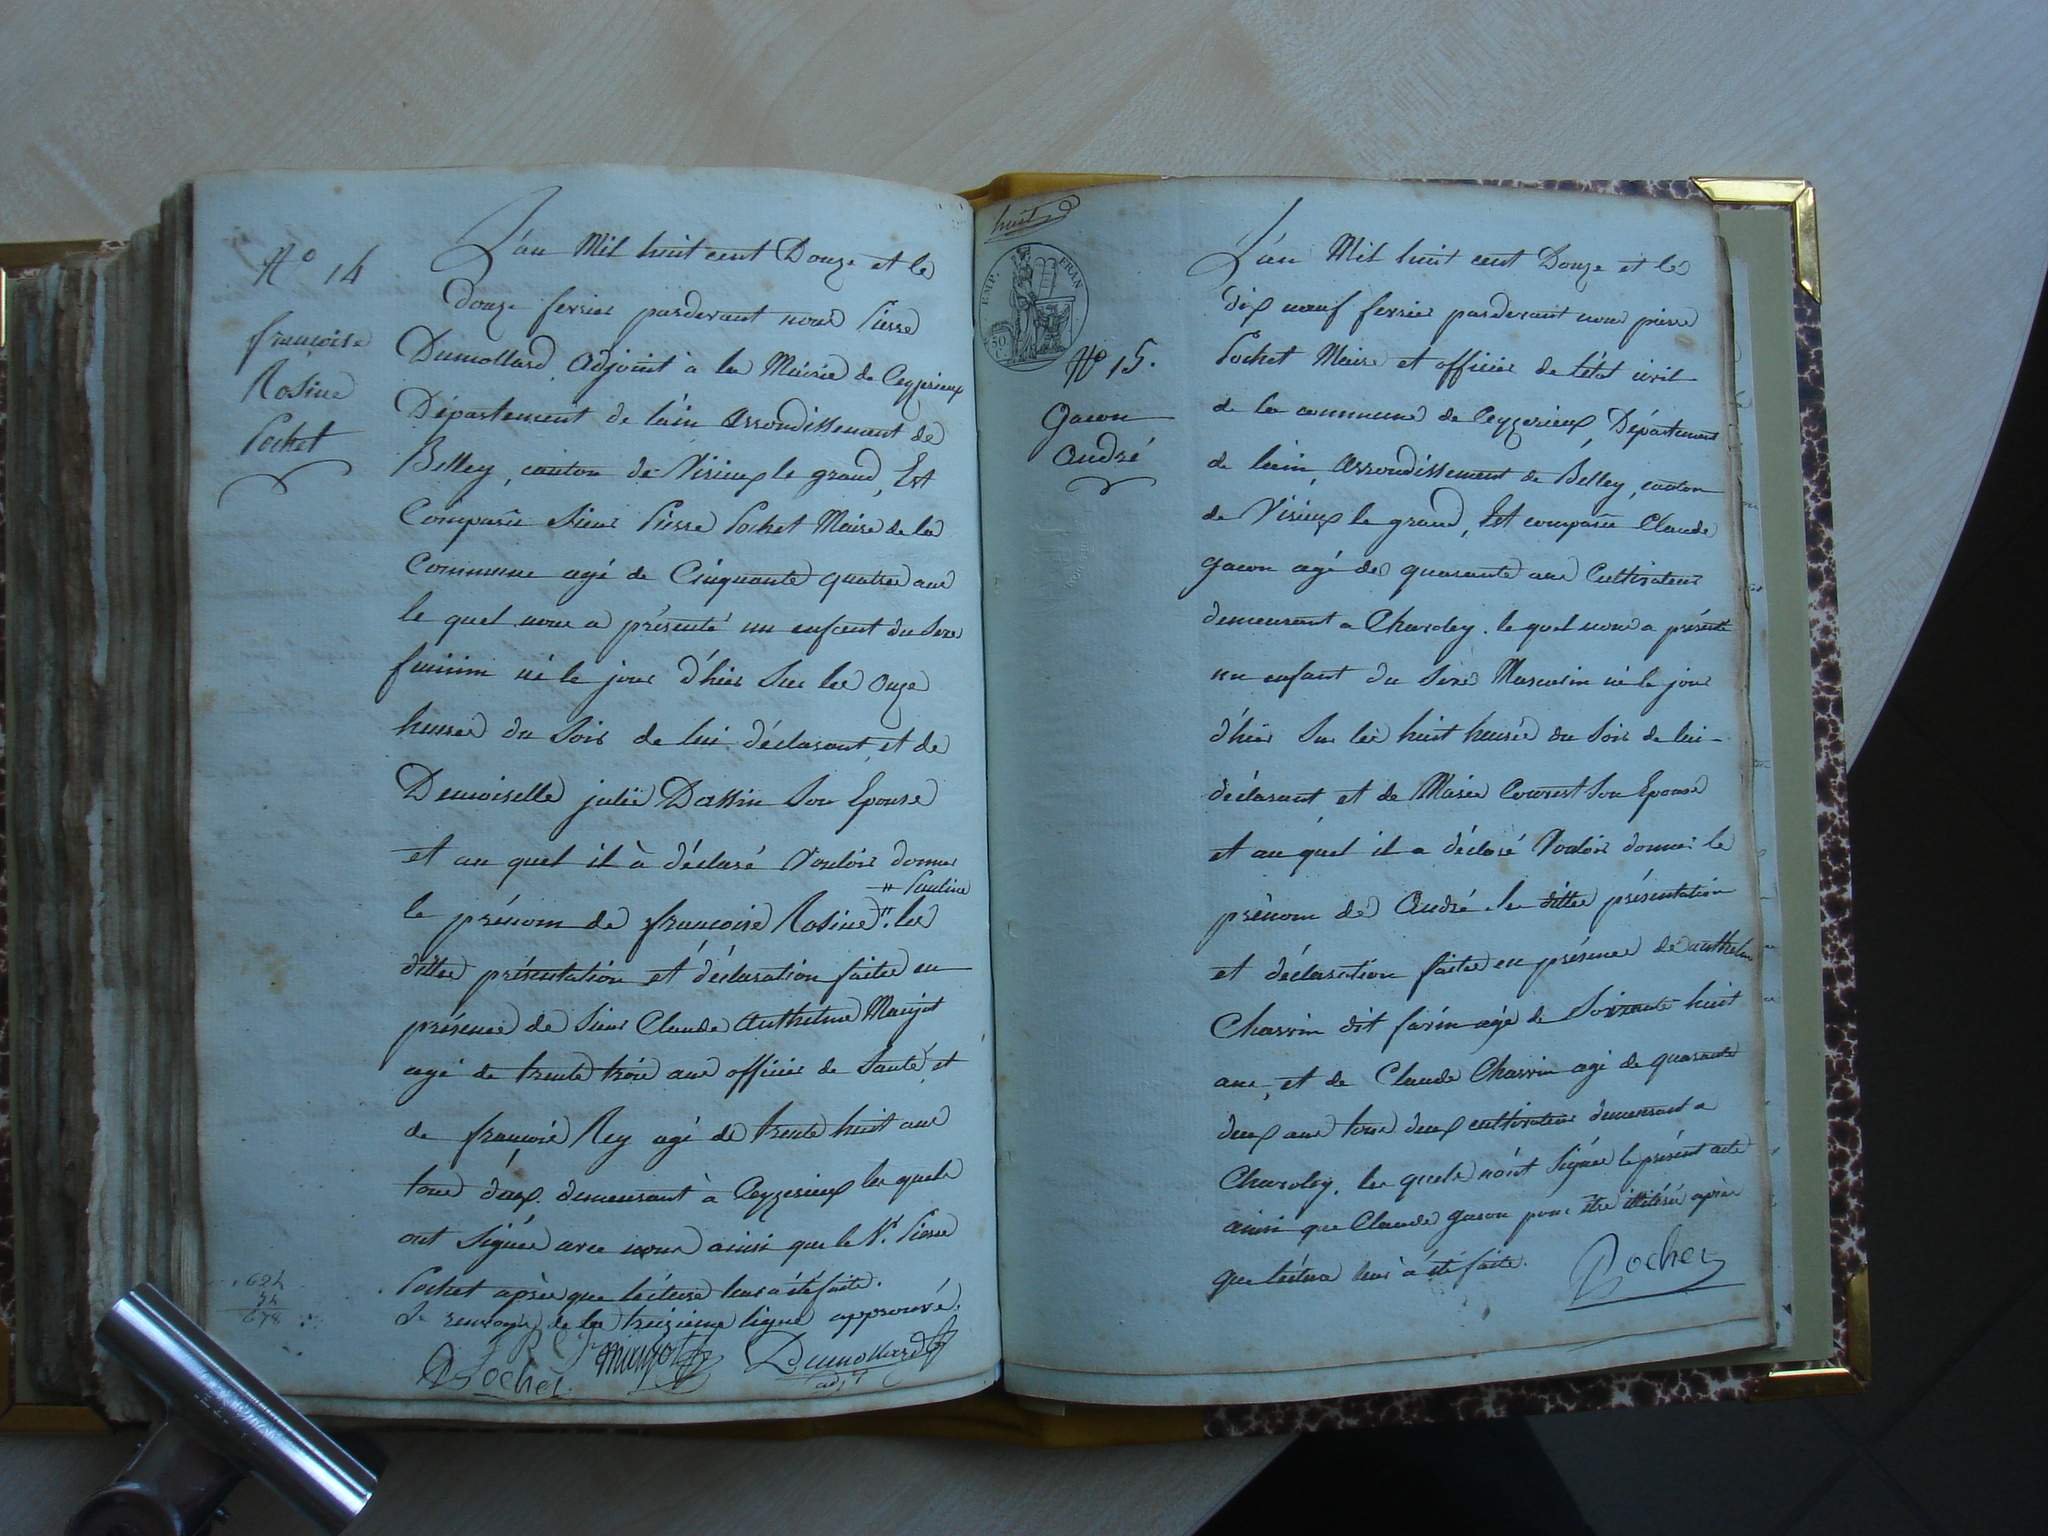 N° 14
françoise
Rosine
Pochet
L'an Mil huit cent Douze et le
douze fevrier pardevant nous Pierre
Dumollard Adjoint à la Mairie de Ceyzerieux
Département de l'ain arrondissement de
Belley, canton de Virieux le grand, Est
Comparû Sieur Pierre Pochet Maire de la
Commune agé de Cinquante quatre ans
le quel nous a présenté un enfant du Sexe
feminin né le jour d'hier Sur les onze
heures du Soir de lui déclarant, et de
Demoiselle julie Son Epouse
et au quel il à déclaré Vouloir donner
" Pauline
le prénom de françoise Rosine ". la
ditte présentation et déclaration faite en
présence de Sieur Claude Anthelme
agé de trente trois ans officier de Santé, et
de françois Rey agé de trente huit ans
tous deux demeurant à Ceyzerieux les quels
ont Signés avec nous ainsi que le Sr. Pierre
Pochet après que lécture leur à été faite.
Le renvoy de la treizieme ligne approuvé.
624
54
678
Pochet Dumollard
adjt
huit
EMP. FRAN
50
C.
N° 15.
Gacon
André
L'an Mil huit cent Douze et le
dix neuf fevrier pardevant nous pierre
Pochet Maire et officier de l'état civil
de la commune de Ceyzerieux, Département
de l'ain, arrondissement de Belley, canton
de Virieux le grand, Est comparû Claude
gacon agé de quarante ans Cultivateur
demeurant a Charoley. le quel nous a présenté
un enfant du Sexe Masculin né le jour
d'hier Sur les huit heures du Soir de lui
déclarant, et de Marie Son Epouse
et au quel il a déclaré Vouloir donner le
prénom de André. la ditte présentation
et déclaration faite en présence de anthelme
Charvin dit farin agé de Soixante huit
ans, et de Claude Charvin agé de quarante
deux ans tous deux cultivateurs demeurant a
Charoley, les quels n'ont Signés le présent acte
ainsi que Claude gacon pour être illitéré après
que lécture leur à été faite.
Pochet